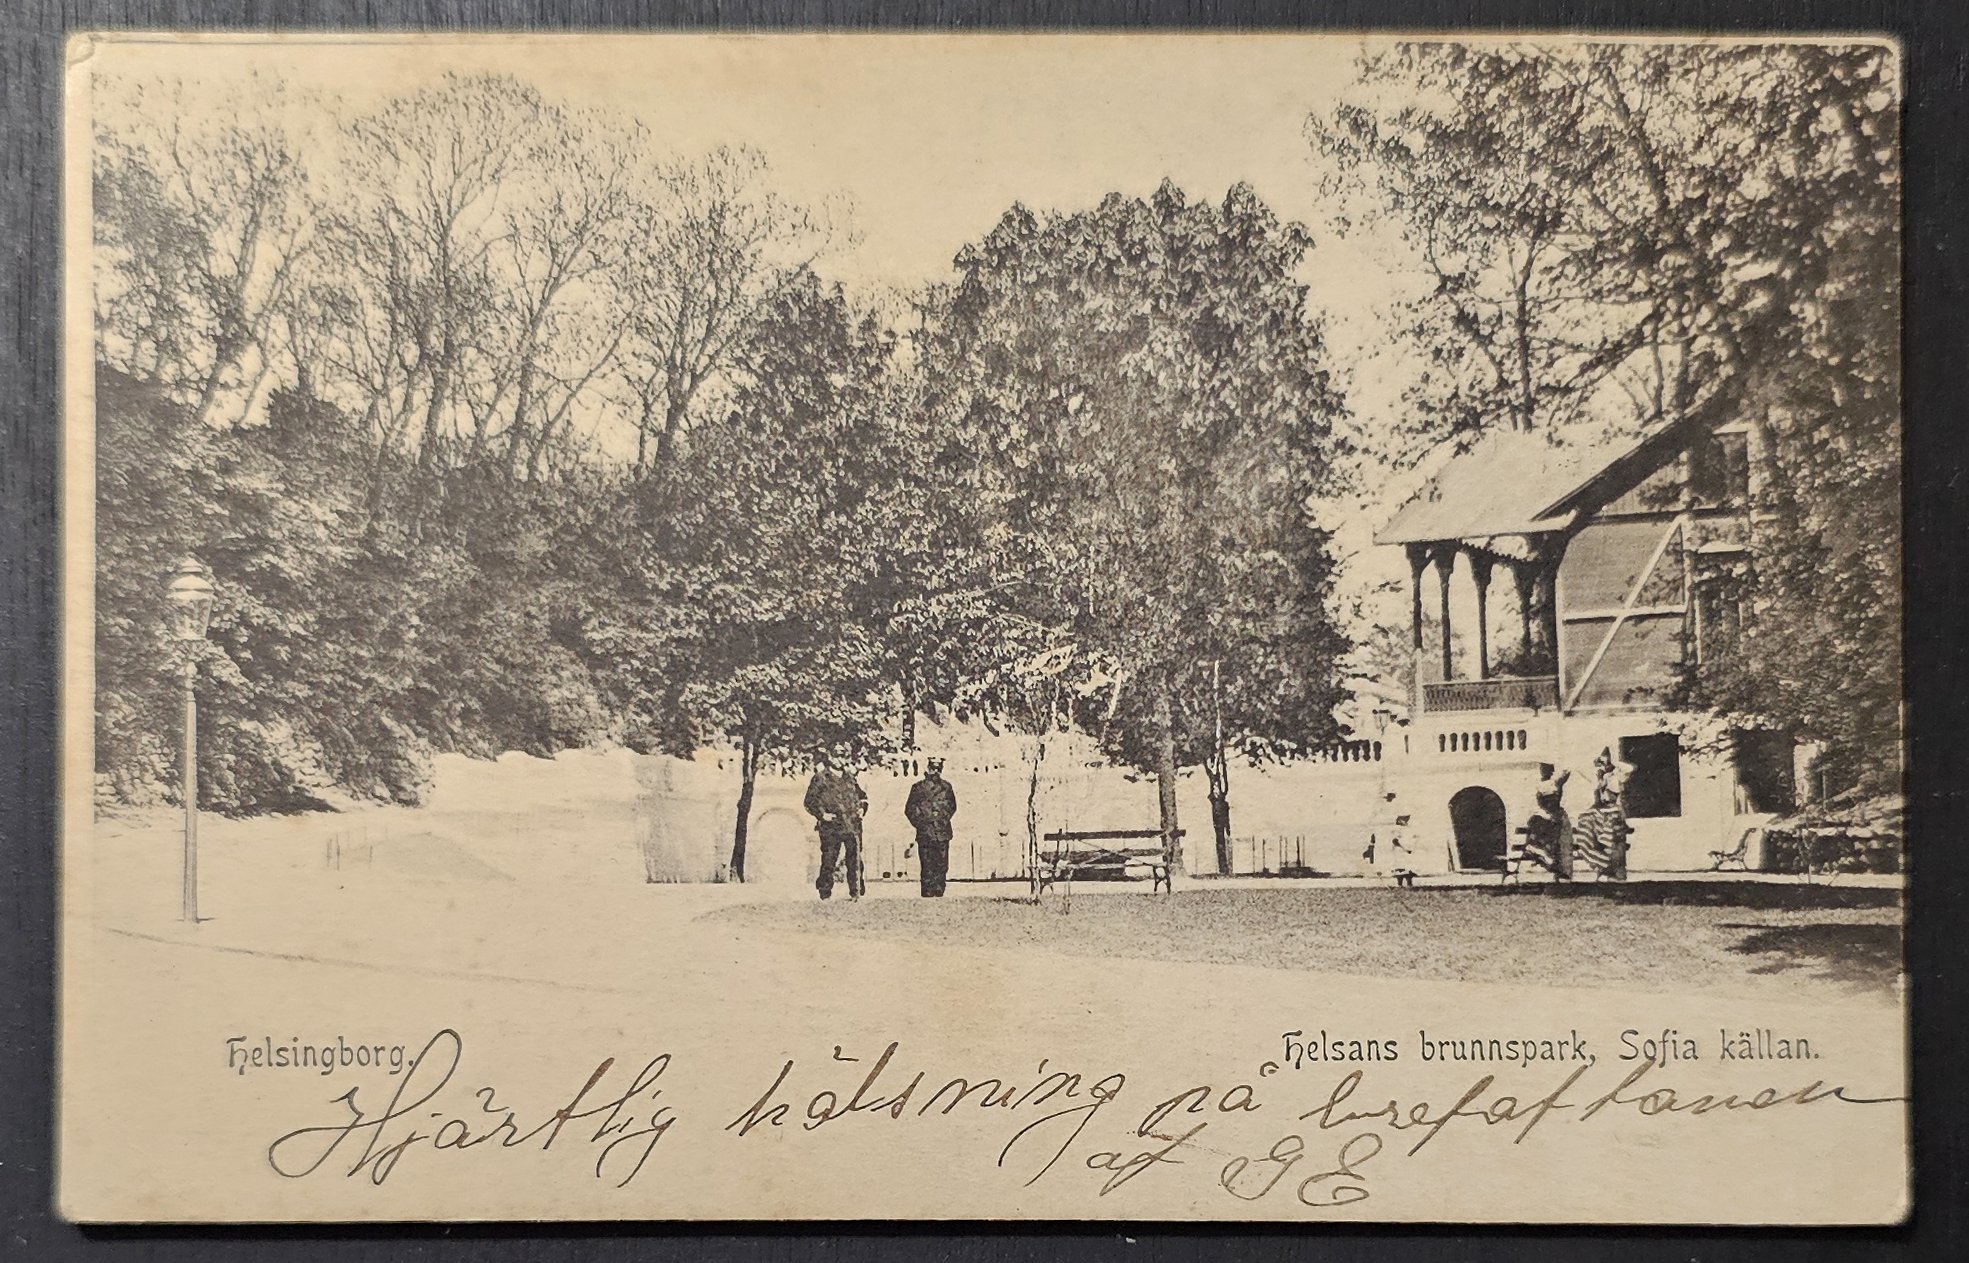 Helsingborg.
Helsans brunnspark, Sofia källan.
Hjärtlig hälsning på
af G E